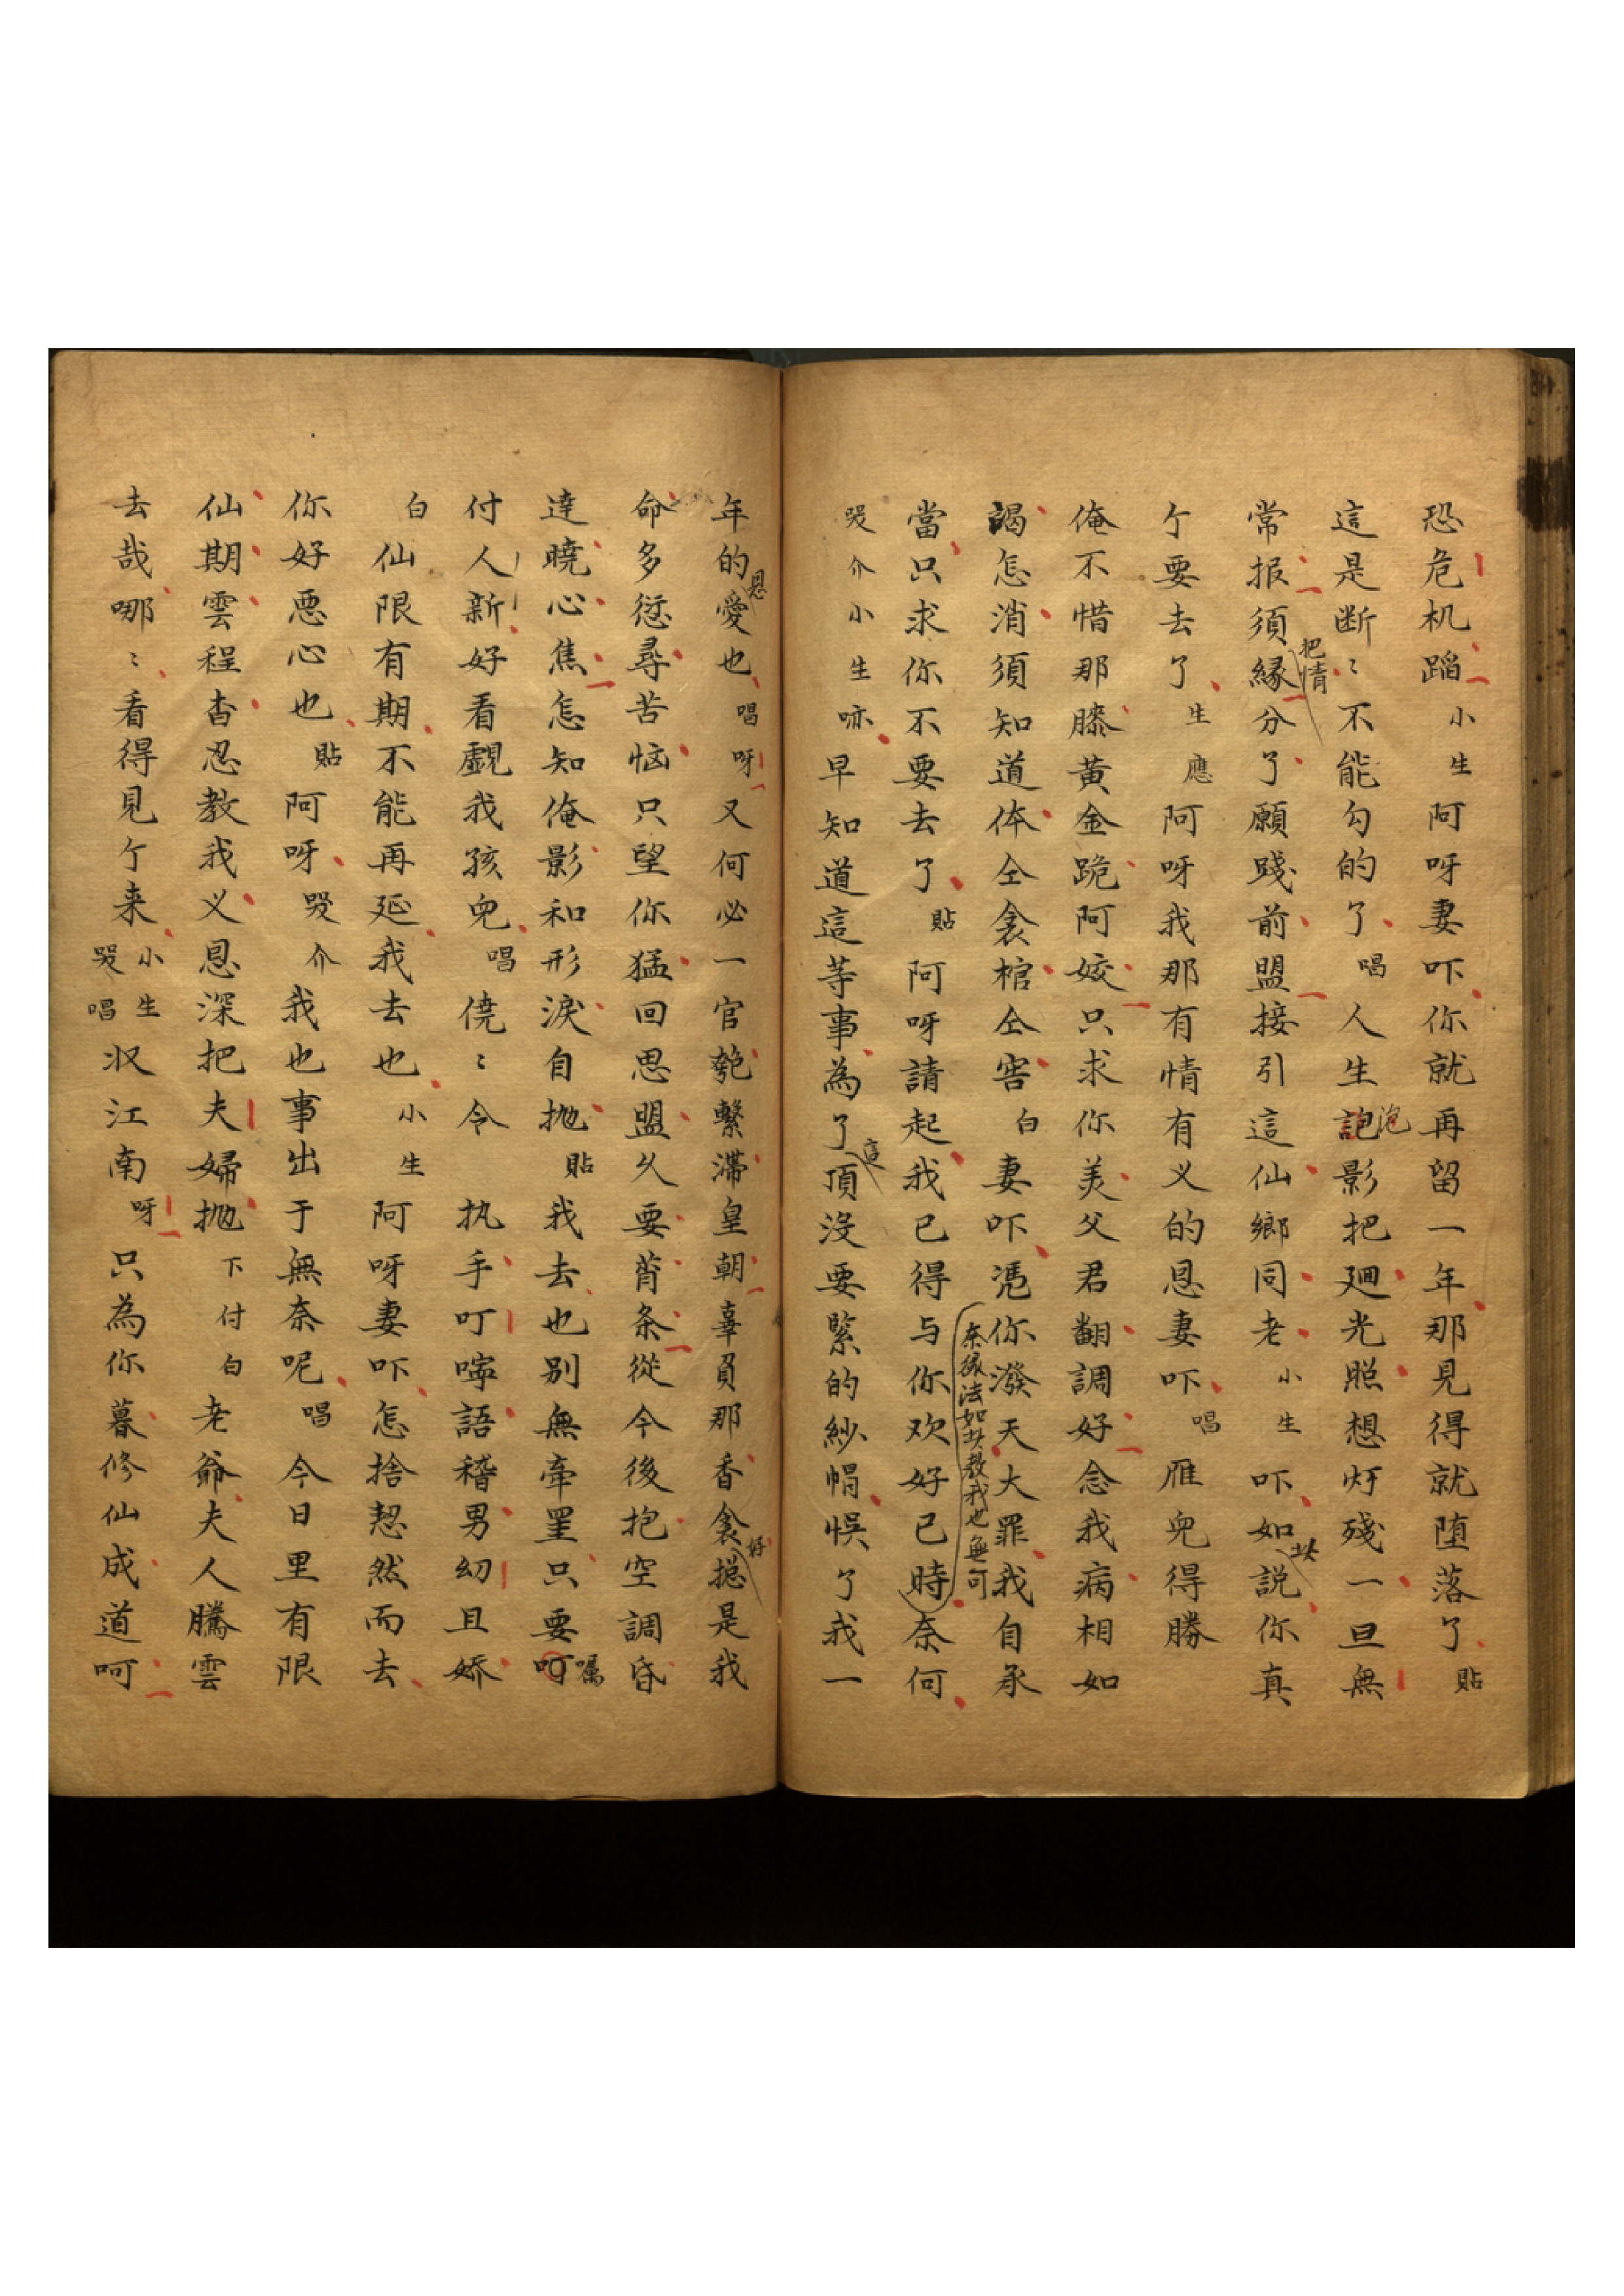 恐危机蹈小生阿呀妻吓你就再留一年那見得就堕落了貼
這是断〻不能勾的了唱人生跑泡影把廻光照想灯殘一旦無
常报須把情緣分了願踐前盟接引這仙鄉同老小生吓如此説你真
亇要去了生應阿呀我那有情有义的恩妻吓唱雁兒得勝
俺不惜那膝黄金跪阿姣只求你美父君翻調好念我病相如
謁怎消須知道体仝衾棺仝窖白妻吓凴你潑天大罪我自承
當只求你不要去了貼阿呀請起我已得与你欢好已時奈何
奈緣法如此教我也無可
哭介小生咏早知道這等事為了這頂沒要緊的紗帽悞了我一
年的恩愛也唱呀又何必一官匏繫滯皇朝辜負那香衾好摠是我
命多愆尋苦恼只望你猛回思盟久要莦条從今後抱空調昏
達曉心焦怎知俺影和形淚自抛貼我去也别無牽罣只要叮囑
付人新好看覷我孩兒唱僥〻令执手叮嚀語稽男幼且娇
白仙限有期不能再延我去也小生阿呀妻吓怎捨恝然而去
你好悪心也貼阿呀哭介我也事出于無奈呢唱今日里有限
仙期雲程杳忍教我义恩深把夫婦抛下付白老爺夫人騰雲
去哉哪〻看得見亇来小生哭唱収江南呀只為你暮修仙成道呵